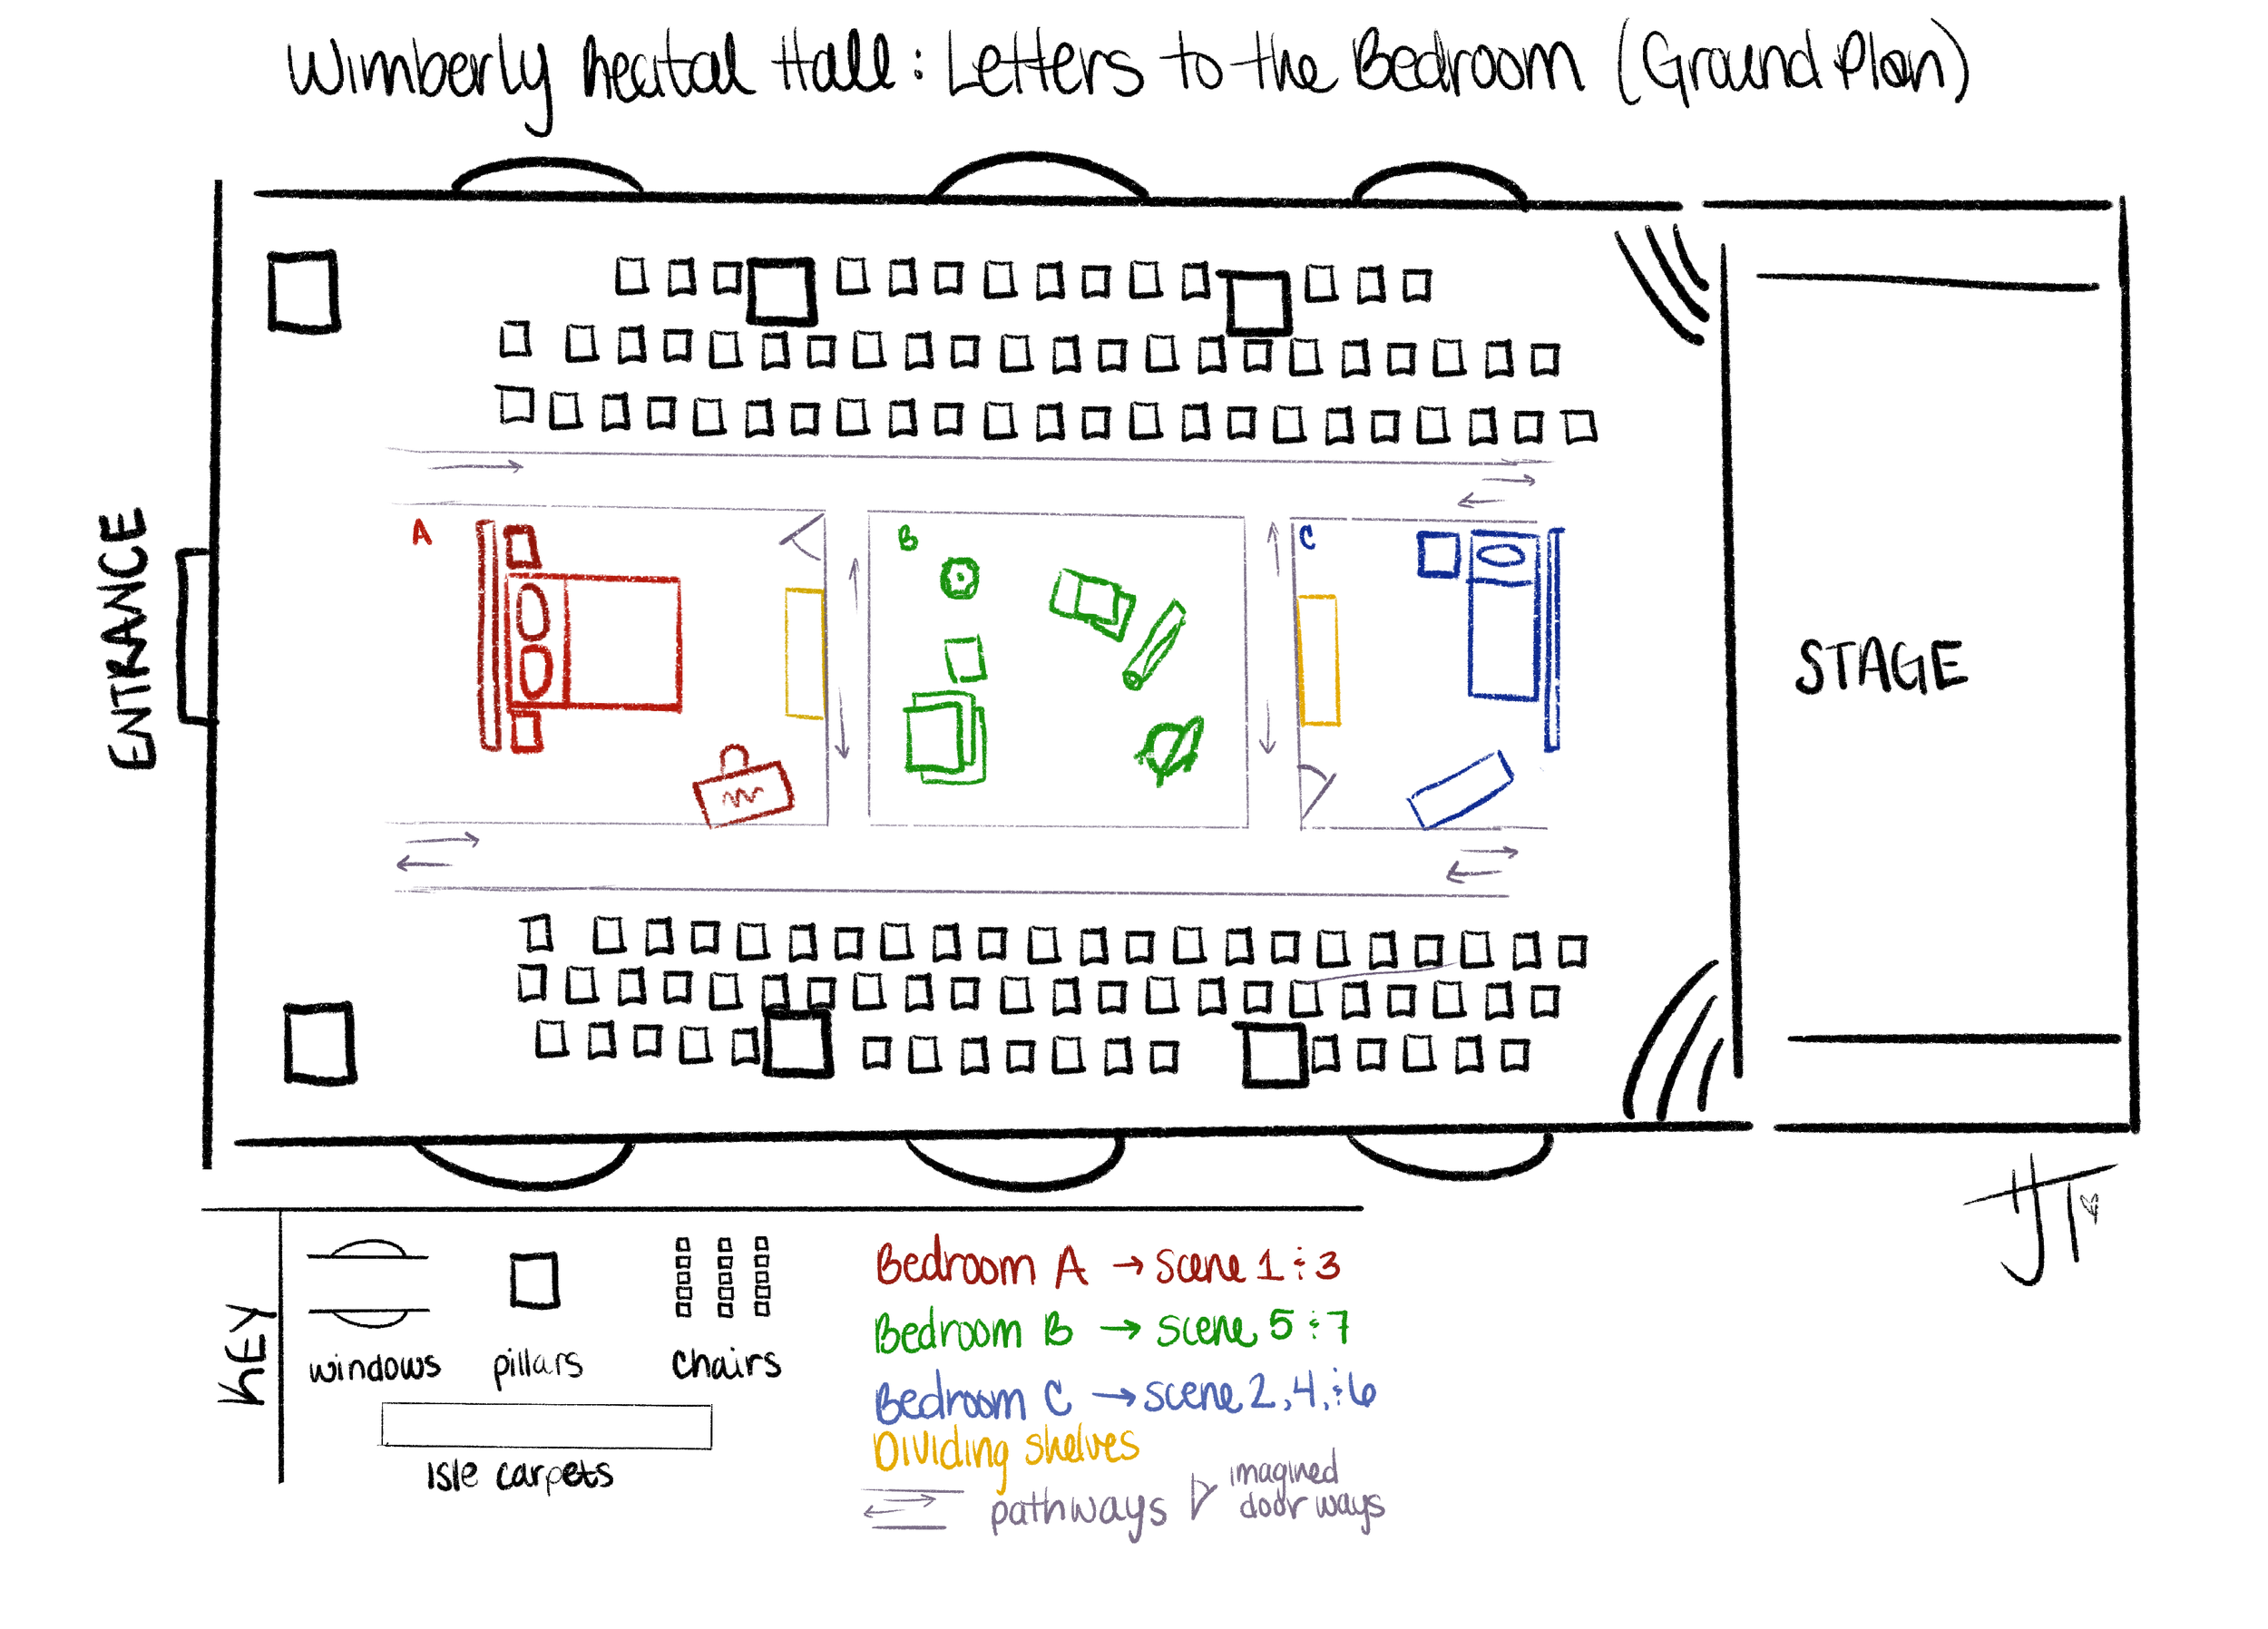 Wimberly Recital Hall: Letters to the Bedroom (Ground Plan)
ENTRANCE
A
B
C
STAGE
JT
KEY
windows
pillars
chairs
Isle carpets
Bedroom A → scene 1 & 3
Bedroom B → scene 5 & 7
Bedroom C → scene 2, 4, & 6
Dividing shelves
pathways
imagined
door ways